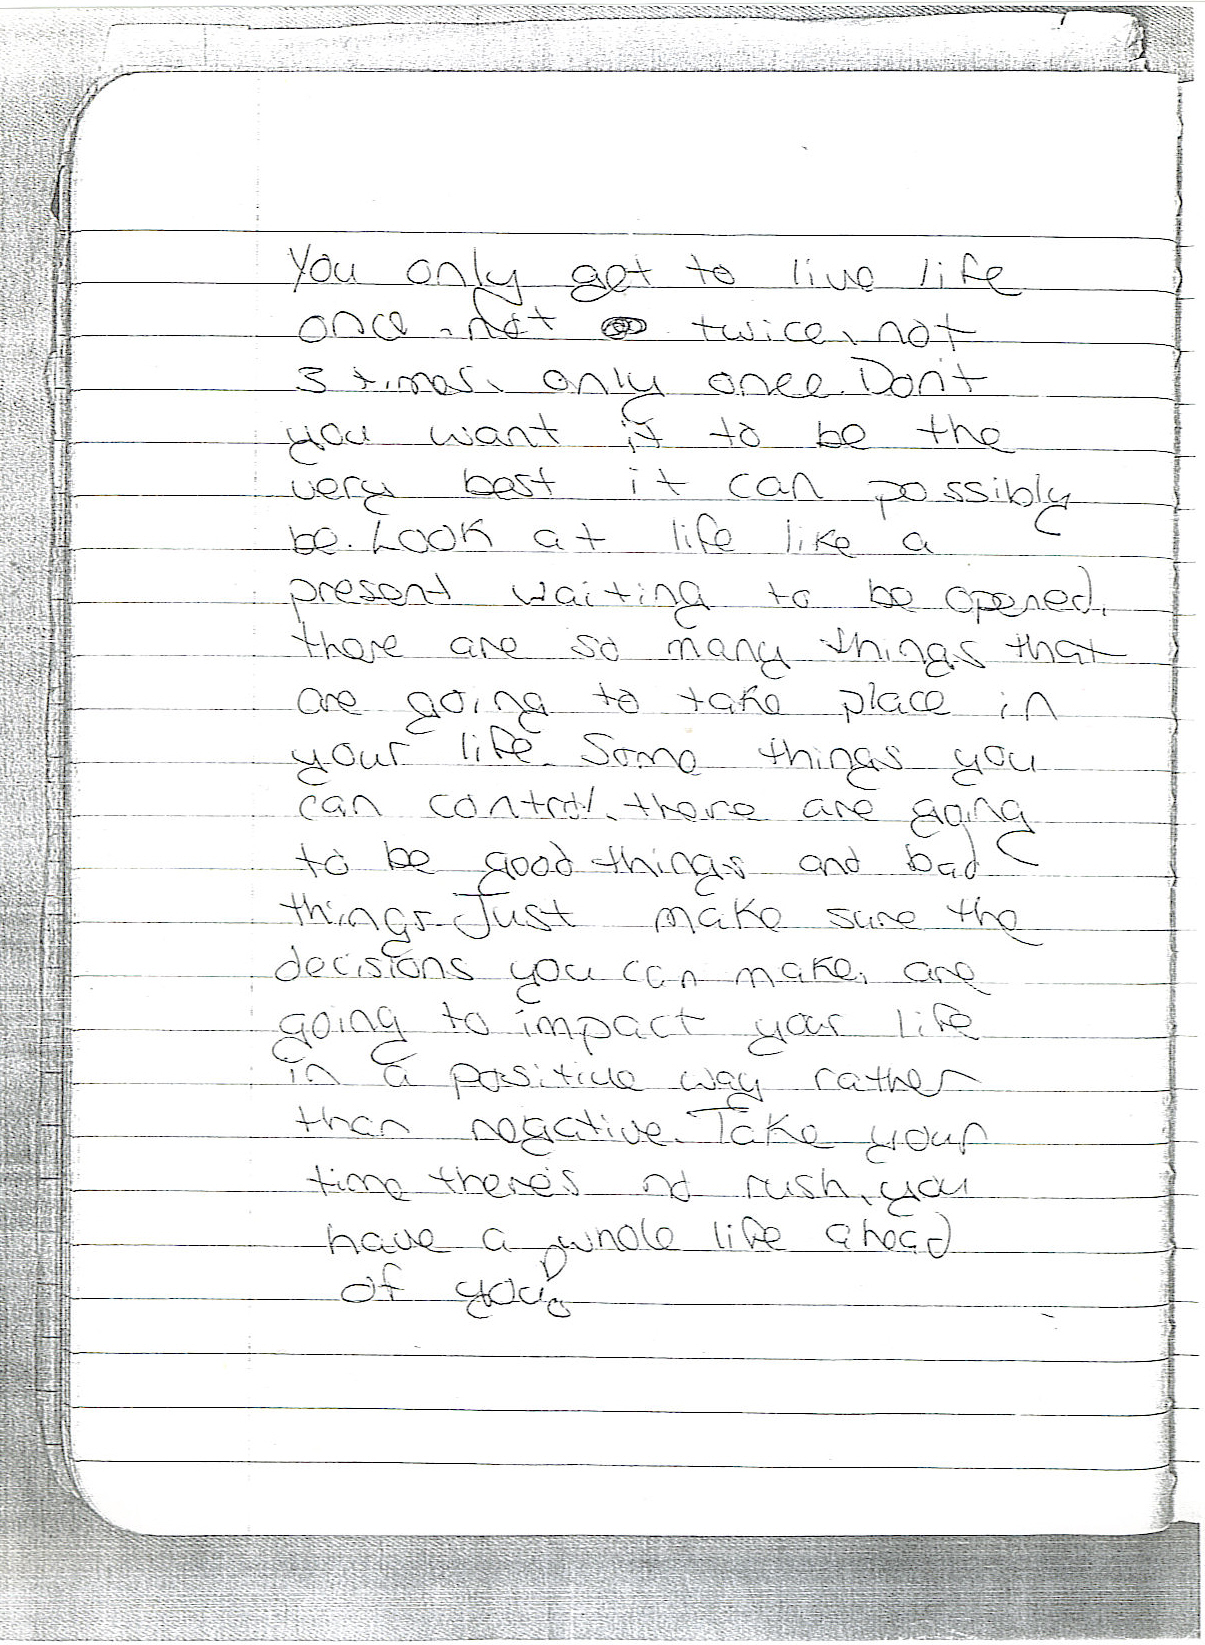 You only get to live life
once. not twice, not
3 times, only once. Don't
you want it to be the
very best it can possibly
be. Look at life like a
present waiting to be opened.
there are so many things that
are going to take place in
your life. Some things you
can control. there are going
to be good things and bad
things. Just make sure the
decisions you can make, are
going to impact your life
in a positive way rather
than negative. Take your
time there's no rush, you
have a whole life ahead
of you.